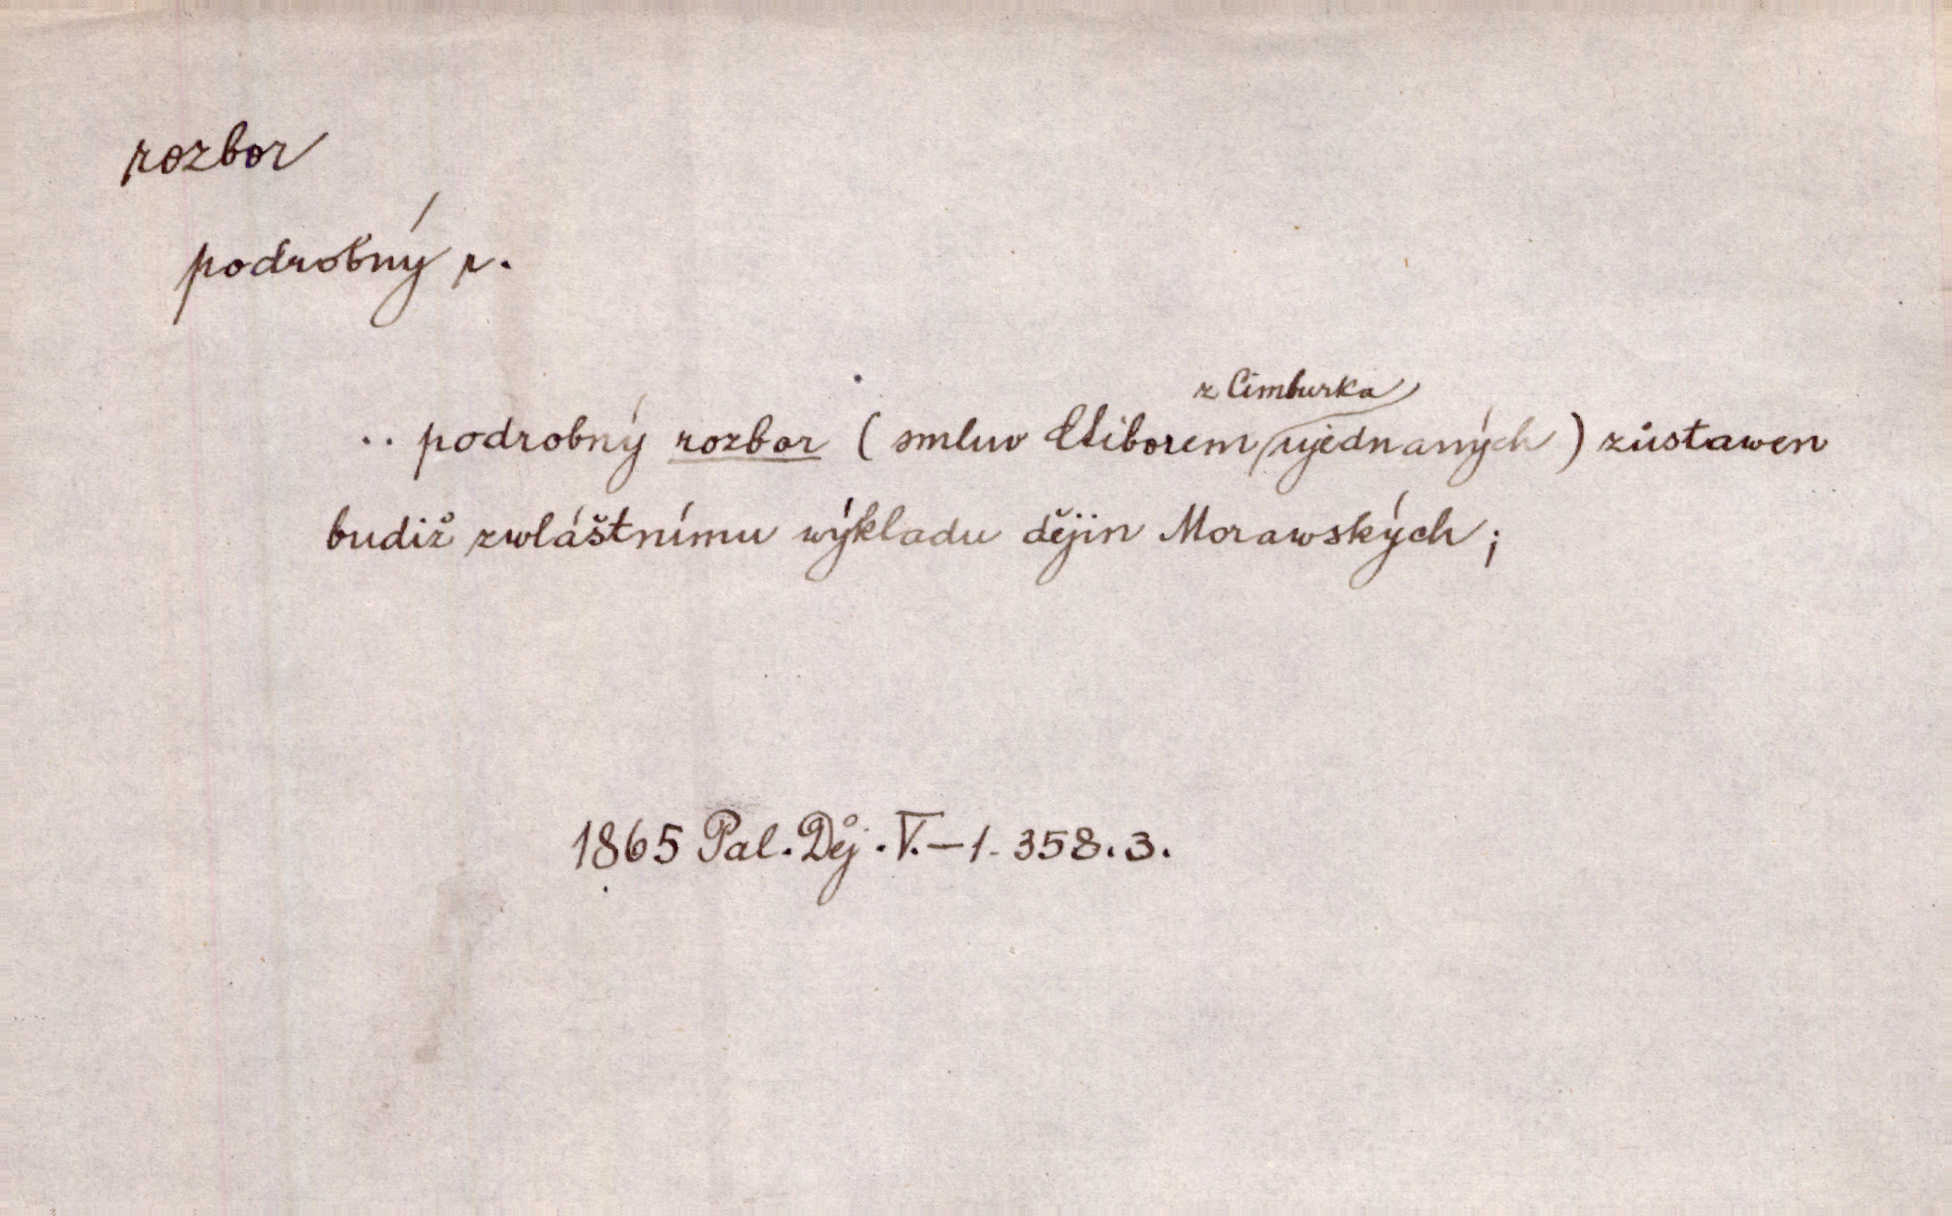 rozbor
podrobný r.
z Cimburka
.. podrobný rozbor (smluw Ctiborem ujednaných) zůstawen
budiž zwláštnímu wýkladu dějin Morawských;
1865 Pal. Děj. V.–1. 358.3.